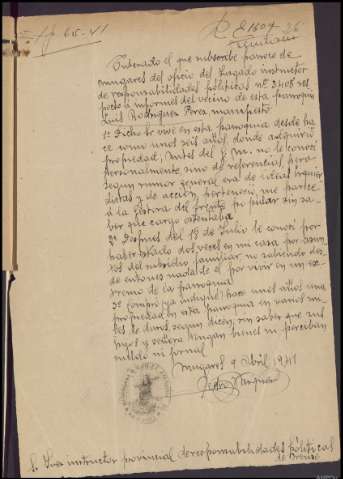 65-41
Ordenado el que subscribe párroco de
mugares del oficio del Juzgado instructor
de responsabilidades políticas nº 2408 res
pecto a informes del vecino de esta parroquia
Luis Rodriguez Perez manifiesto
1º Dicho Sr vive en esta parroquia desde ha
ce como unos seis años donde adquirió
propiedad. Antes del G. M. no le conocí
personalmente sino de referencias pero
segun rumor general era de ideas izquier
distas y de acción, perteneció me parece
a la gestora del frente pº pular sin sa
ber que cargo ostentaba
2º Despues del 18 de Julio le conocí por
haber estado dos veces en mi casa por asun
tos del subsidio familiar no sabiendo des
de entonces nada de el por vivir en un ex
tremo de la parroquia
3º Compró (ya indiqué) hace unos años una
propiedad en esta parroquia en varios mi
les de duros segun dicen, sin saber que sus
hijos y señora tengan bienes ni perciban
sueldo ni jornal
Mugares 9 Abril 1941
Pedro
S. Juez instructor provincial de responsabilidades políticas
de Orense